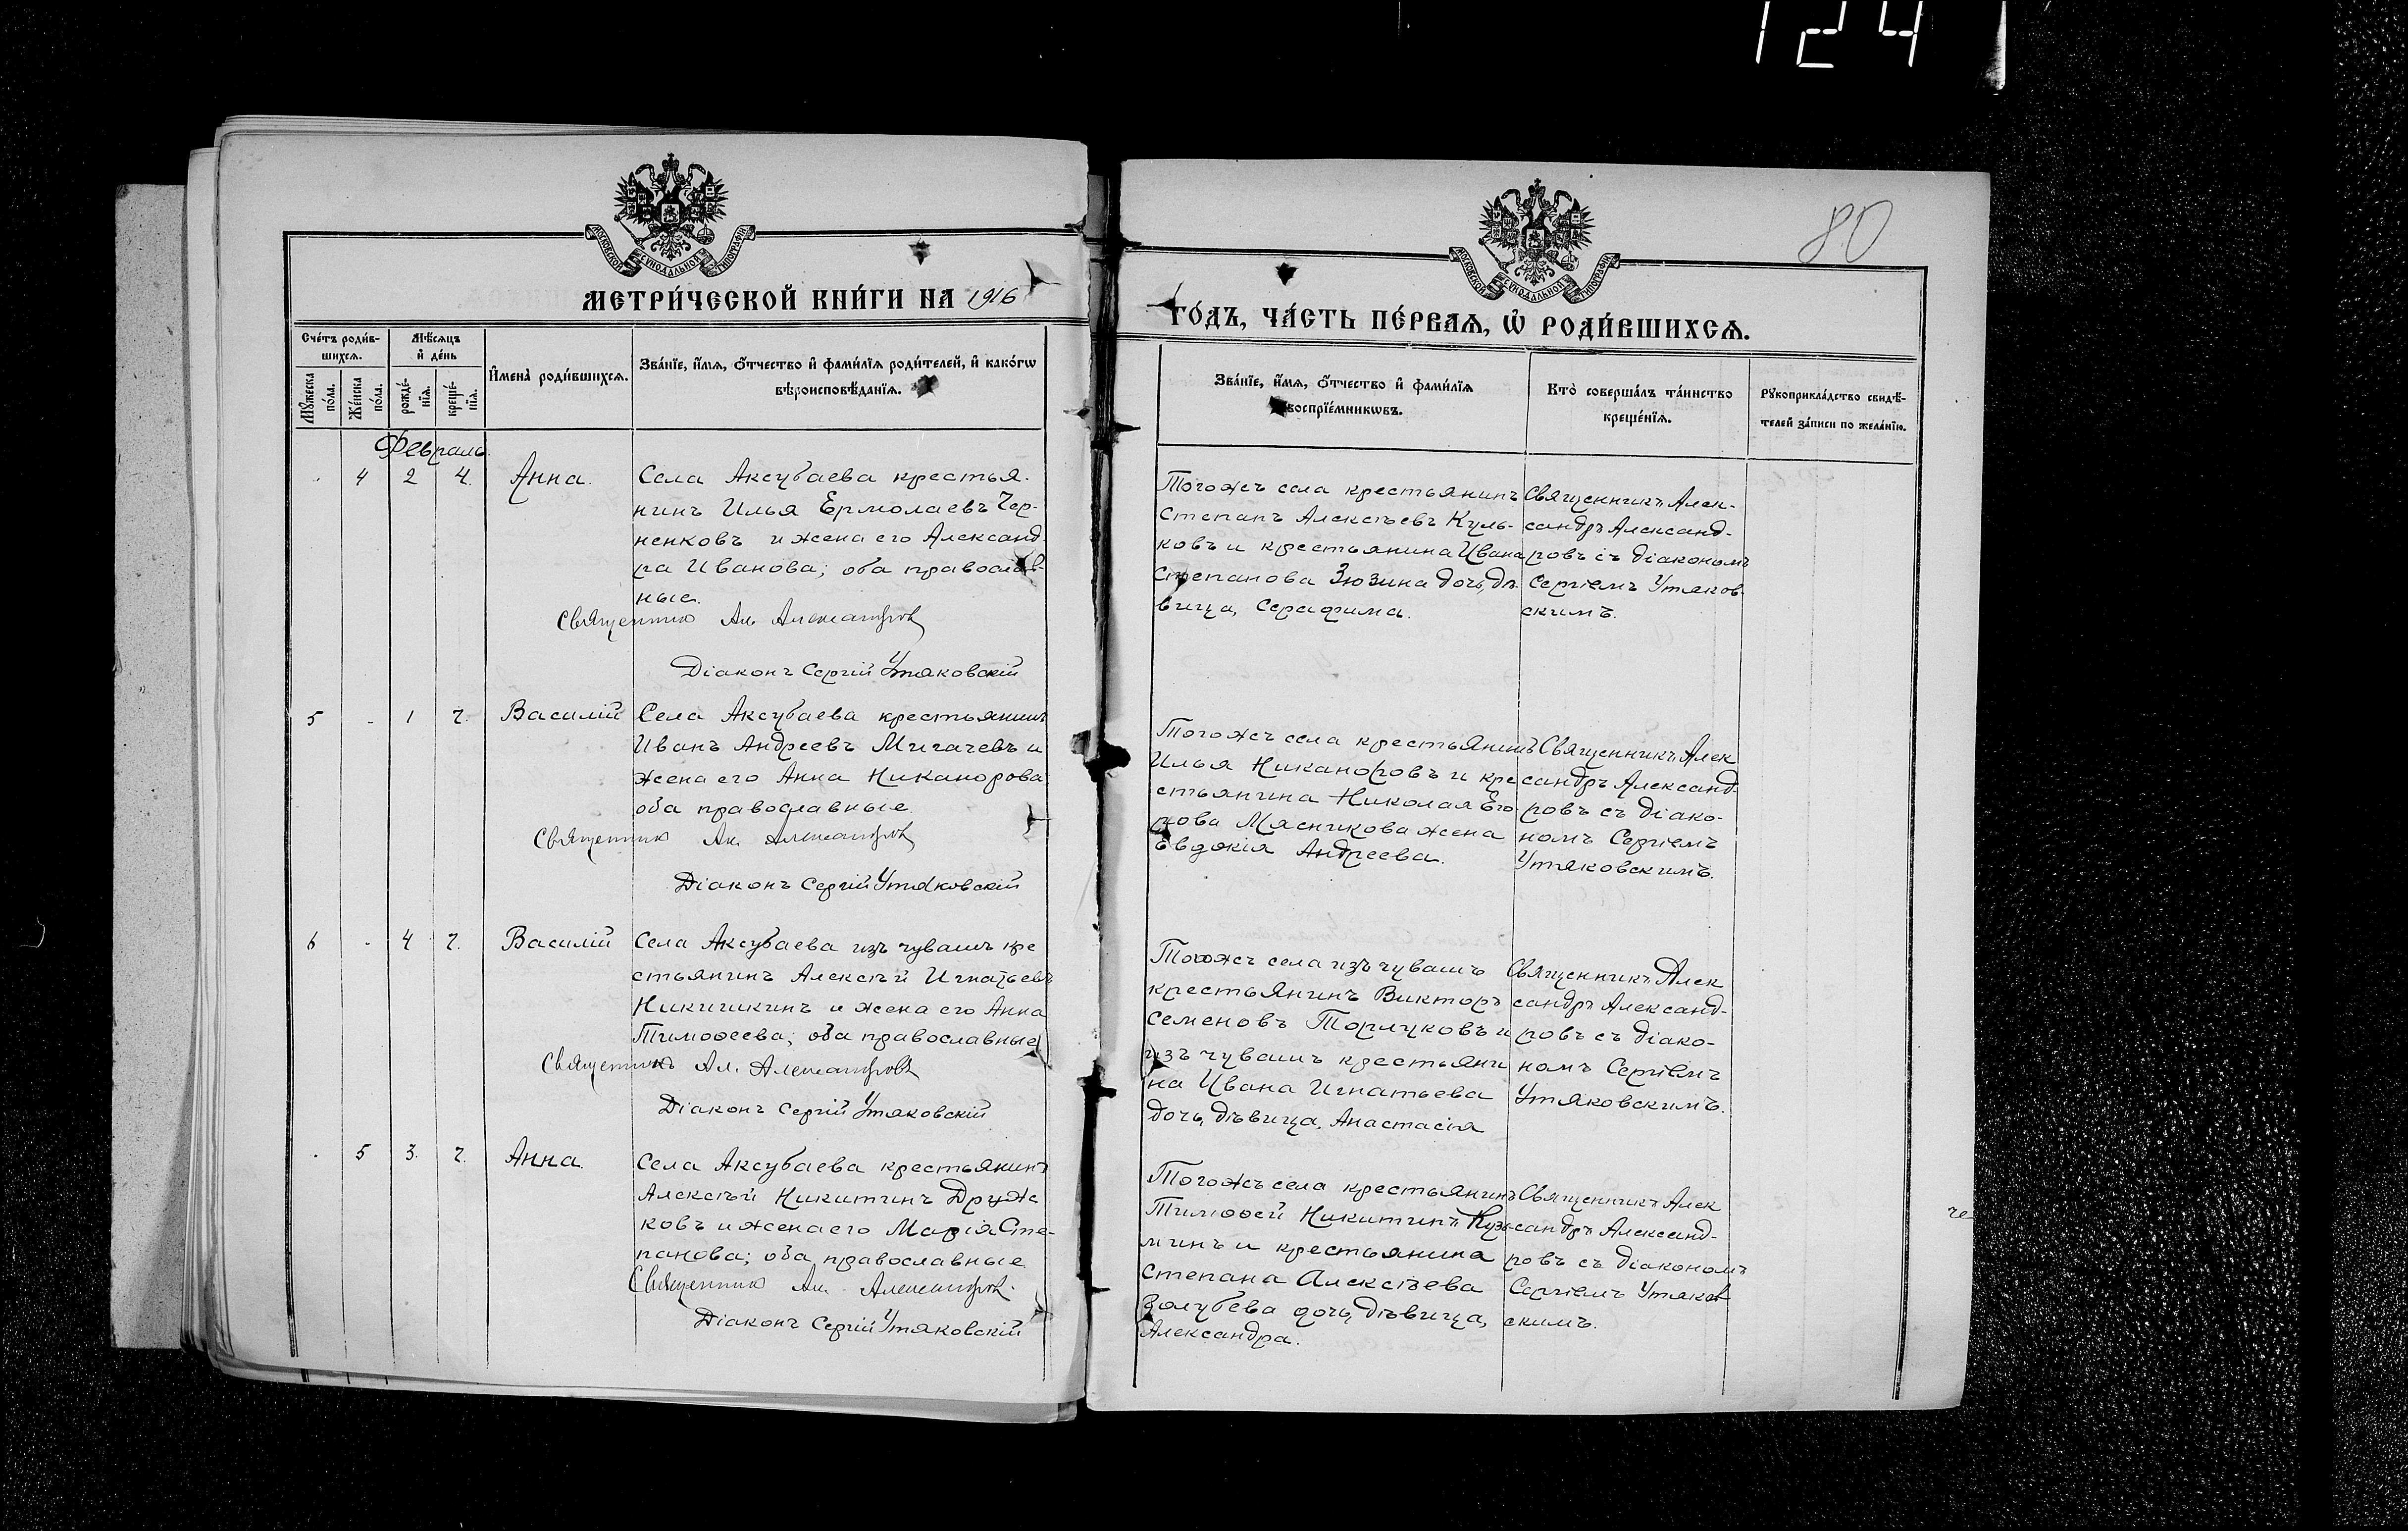 124
80
МОСКОВСКОЙ СѴНОДАЛЬНОЙ ТИПОГРАФІИ
МОСКОВСКОЙ СѴНОДАЛЬНОЙ ТИПОГРАФІИ
МЕТРИ́ЧЕСКОЙ КНИ́ГИ НА 1916
ГО́ДЪ, ЧА́СТЬ ПЕ́РВАѦ, Ѡ РОДИ́ВШИХСѦ.
Сче́тъ роди́в-
шихсѧ.
Мꙋ́жеска
по́ла.
Же́нска
по́ла.
Мѣ́сѧцъ
и҆ де́нь
рожде́-
нїѧ.
креще́-
нїѧ.
И҆мена̀ роди́вшихсѧ.
Зва́нїе, и҆́мѧ, ѻ҆́тчество и҆ фами́лїѧ роди́телей, и҆ како́гѡ
вѣроисповѣ́данїѧ.
Зва́нїе, и҆́мѧ, ѻ҆́тчество и҆ фами́лїѧ
воспрїе́мникѡвъ.
Кто̀ соверша́лъ та́инство
креще́нїѧ.
Рꙋкоприкла́дство свидѣ́-
телей за́писи по жела́нїю.
Февраль.
4 2 4. Анна.
Села Аксубаева крестья-
нинъ Илья Ермолаевъ Чер-
ненковъ и жена его Александ-
ра Иванова; оба православ-
ные.
Священник Ал. Александров
Діаконъ Сергій Утяковскій
Тогожъ села крестьянинъ
Степанъ Алексѣевъ Куль-
ковъ и крестьянина Ивана
Степанова Зюзина дочь, дѣ-
вица, Серафима.
Священникъ Алек-
сандръ Александ-
ровъ съ діакономъ
Сергіемъ Утяков-
скимъ.
5 - 1 7. Василій
Села Аксубаева крестьянинъ
Иванъ Андреевъ Мигачевъ и
жена его Анна Никанорова
оба православные
Священник Ал. Александров
Діаконъ Сергій Утяковскій
Тогожъ села крестьянинъ
Илья Никаноровъ и кре
стьянина Николая Его-
рова Мясникова жена
Евдокія Андреева.
Священникъ Алек
сандръ Александ-
ровъ съ діако-
номъ Сергіемъ
Утяковскимъ.
6 - 4 7. Василій
Села Аксубаева изъ чувашъ кре
стьянинъ Алексѣй Игнатьевъ
Никишкинъ и жена его Анна
Тимоѳеева; оба православные
Священникъ Ал. Александровъ
Діаконъ Сергій Утяковскій
Тогожъ села изъ чувашъ
крестьянинъ Викторъ
Семеновъ Торлуковъ и
изъ чувашъ крестьяни
на Ивана Игнатьева
дочь, дѣвица, Анастасія
Священникъ Алек
сандръ Александ-
ровъ съ діако-
номъ Сергіемъ
Утяковскимъ.
5 3. 7. Анна.
Села Аксубаева крестьянинъ
Алексѣй Никитинъ Друж
ковъ и жена его Марія Сте-
панова; оба православные
Священник Ал. Александров.
Діаконъ Сергій Утяковскій
Тогожъ села крестьянинъ
Тимоѳей Никитинъ Кузь-
минъ и крестьянина
Степана Алексѣева
Голубева дочь, дѣвица,
Александра.
Священникъ Алек
сандръ Александ-
ровъ съ діакономъ
Сергіемъ Утяков
скимъ.